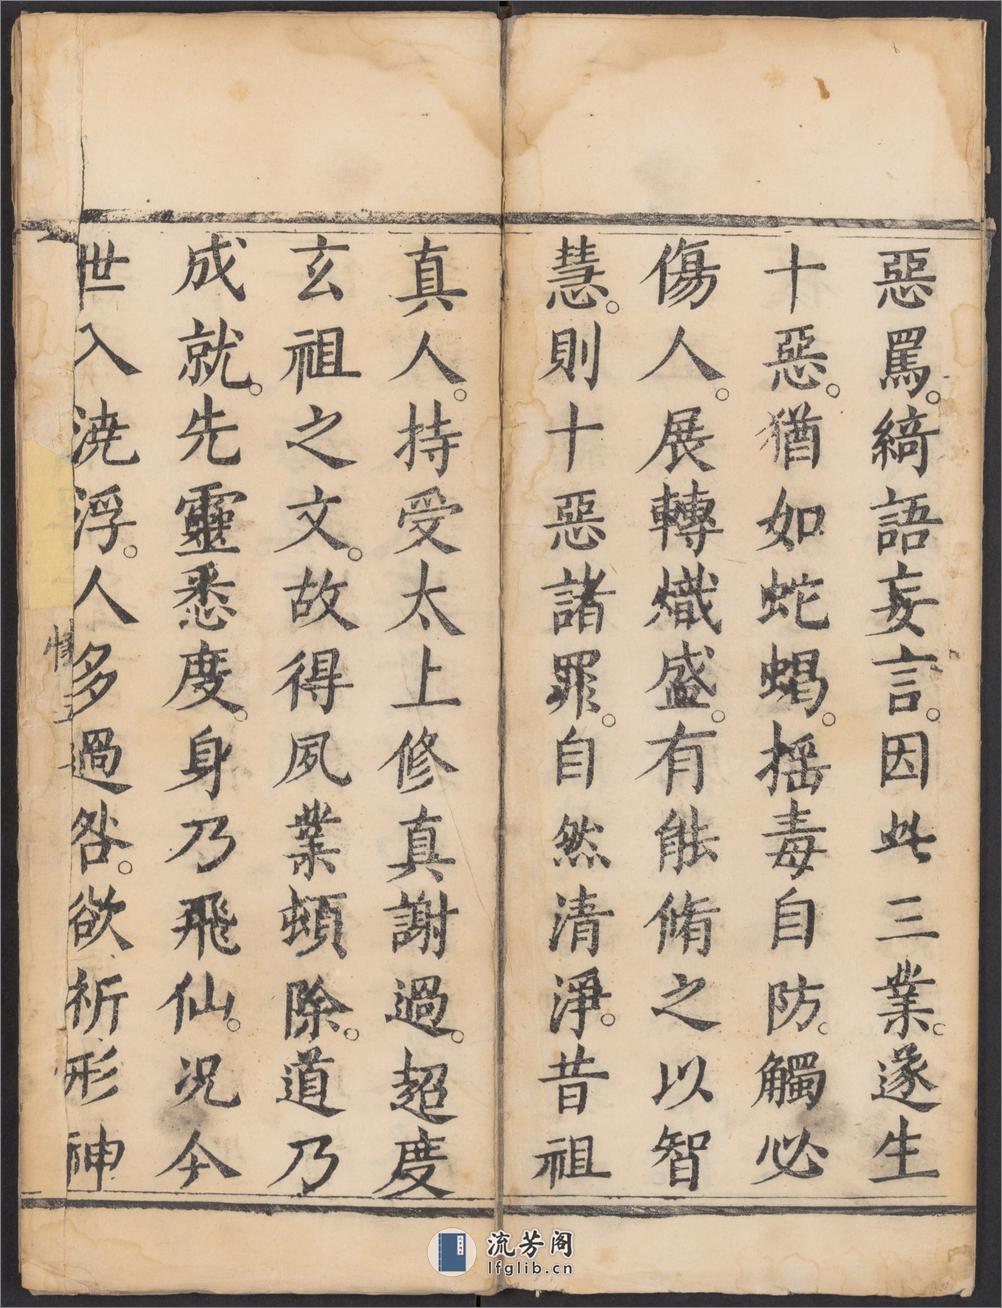 惡罵。綺語妄言。因此三業。遂生
十惡。猶如蛇蝎。搖毒自防。觸必
傷人。展轉熾盛。有能脩之以智
慧。則十惡諸罪。自然清淨。昔祖
真人。持受太上修真謝過。超度
玄祖之文。故得夙業頓除。道乃
成就。先靈悉度。身乃飛仙。況今
世入澆浮。人多過咎。欲祈形神
流芳阁
lfglib.cn